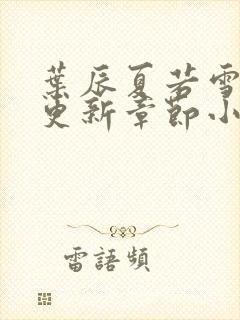 葉辰夏若雪
更新章節小
雷語頻